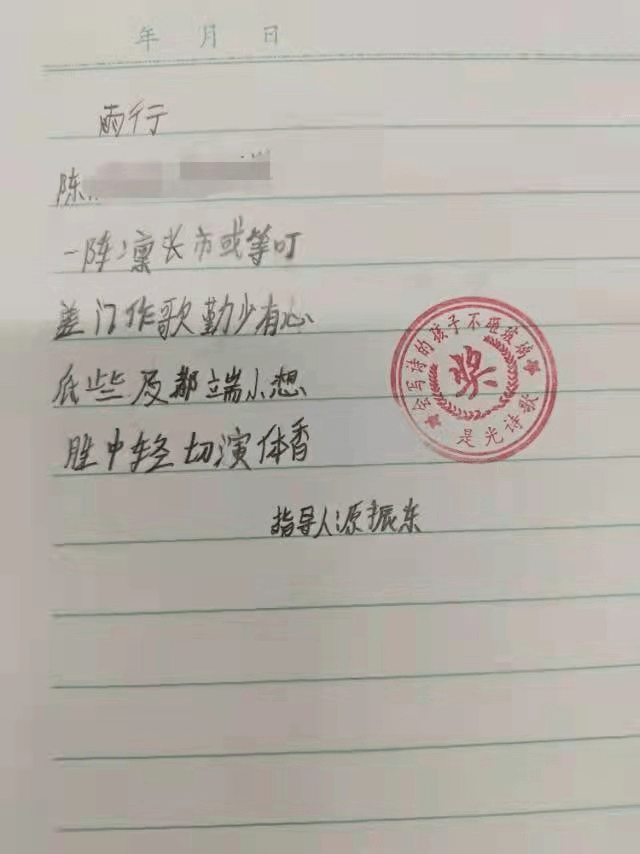 年 月 日
雨行
陈
一阵凛长市或等叮
差门作歌勤少有心
底些及都端小想
胜中轻切演体香
指导人:源振东
会写诗的孩子不砸玻璃
奖
是光诗歌